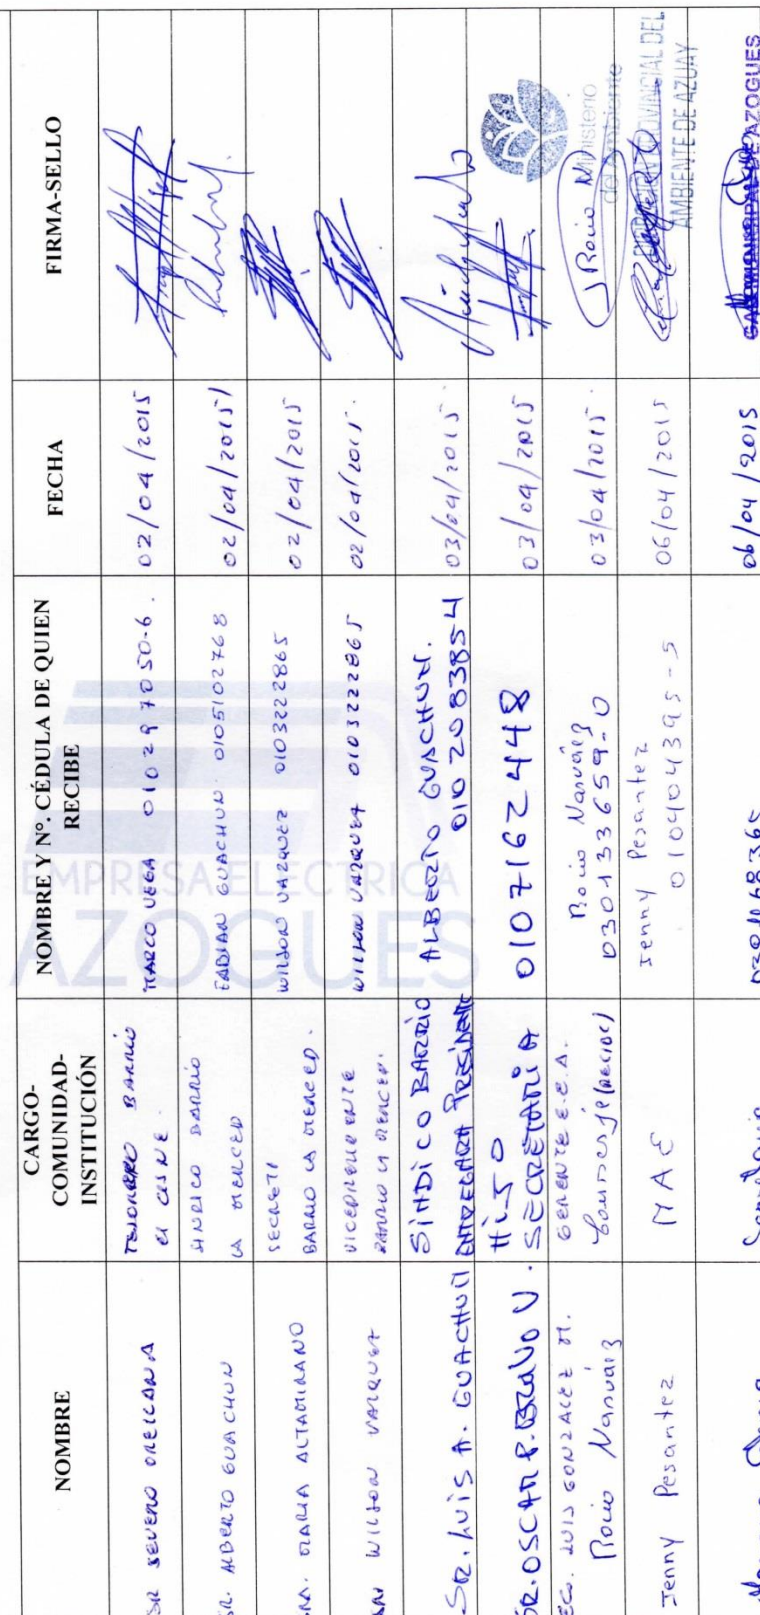 NOMBRE
CARGO-
COMUNIDAD-
INSTITUCIÓN
NOMBRE Y Nº. CÉDULA DE QUIEN
RECIBE
FECHA
FIRMA-SELLO
SR SEVERO ORELLANA
TESORERO BARRIO
EL CISNE
MARCO VEGA 010297050-6.
02/04/2015
SR. ALBERTO GUACHUN
SINDICO BARRIO
LA MERCED
FABIAN GUACHUN 0105102768
02/04/2015/
SRA. MARIA ALTAMIRANO
BARRIO LA MERCED.
WILSON VAZQUEZ 0103222865
02/04/2015
WILSON VAZQUEZ
VICEPRESIDENTE
BARRIO LA MERCED.
WILSON VAZQUEZ 0103222865
02/04/2015.
SR. LUIS A. GUACHUN
SINDICO BARRIO
ENTREGARA PRESIDENTE
ALBERTO GUACHUN.
0102083854
03/04/2015.
SR. OSCAR P. BRAVO V.
HIJO
SECRETARIA
0107162448
03/04/2015
EC. LUIS GONZALEZ M.
Rocio Narváez
GERENTE E.E.A.
Rocio Narváez
030133659-0
03/04/2015.
Rocio N
Ministerio
del Ambiente
Jenny Pesantez
MAE
Jenny Pesantez
010404395-5
06/04/2015
PROVINCIAL DEL
AMBIENTE DE AZUAY
Secretaria
06/04/2015
GAD MUNICIPAL DE AZOGUES
EMPRESA ELECTRICA
AZOGUES